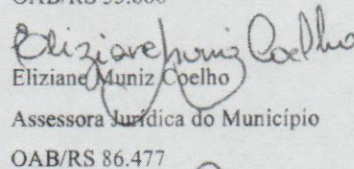 OAB/RS
Eliziane Muniz Coelho
Eliziane Muniz Coelho
Assessora Jurídica do Município
OAB/RS 86.477